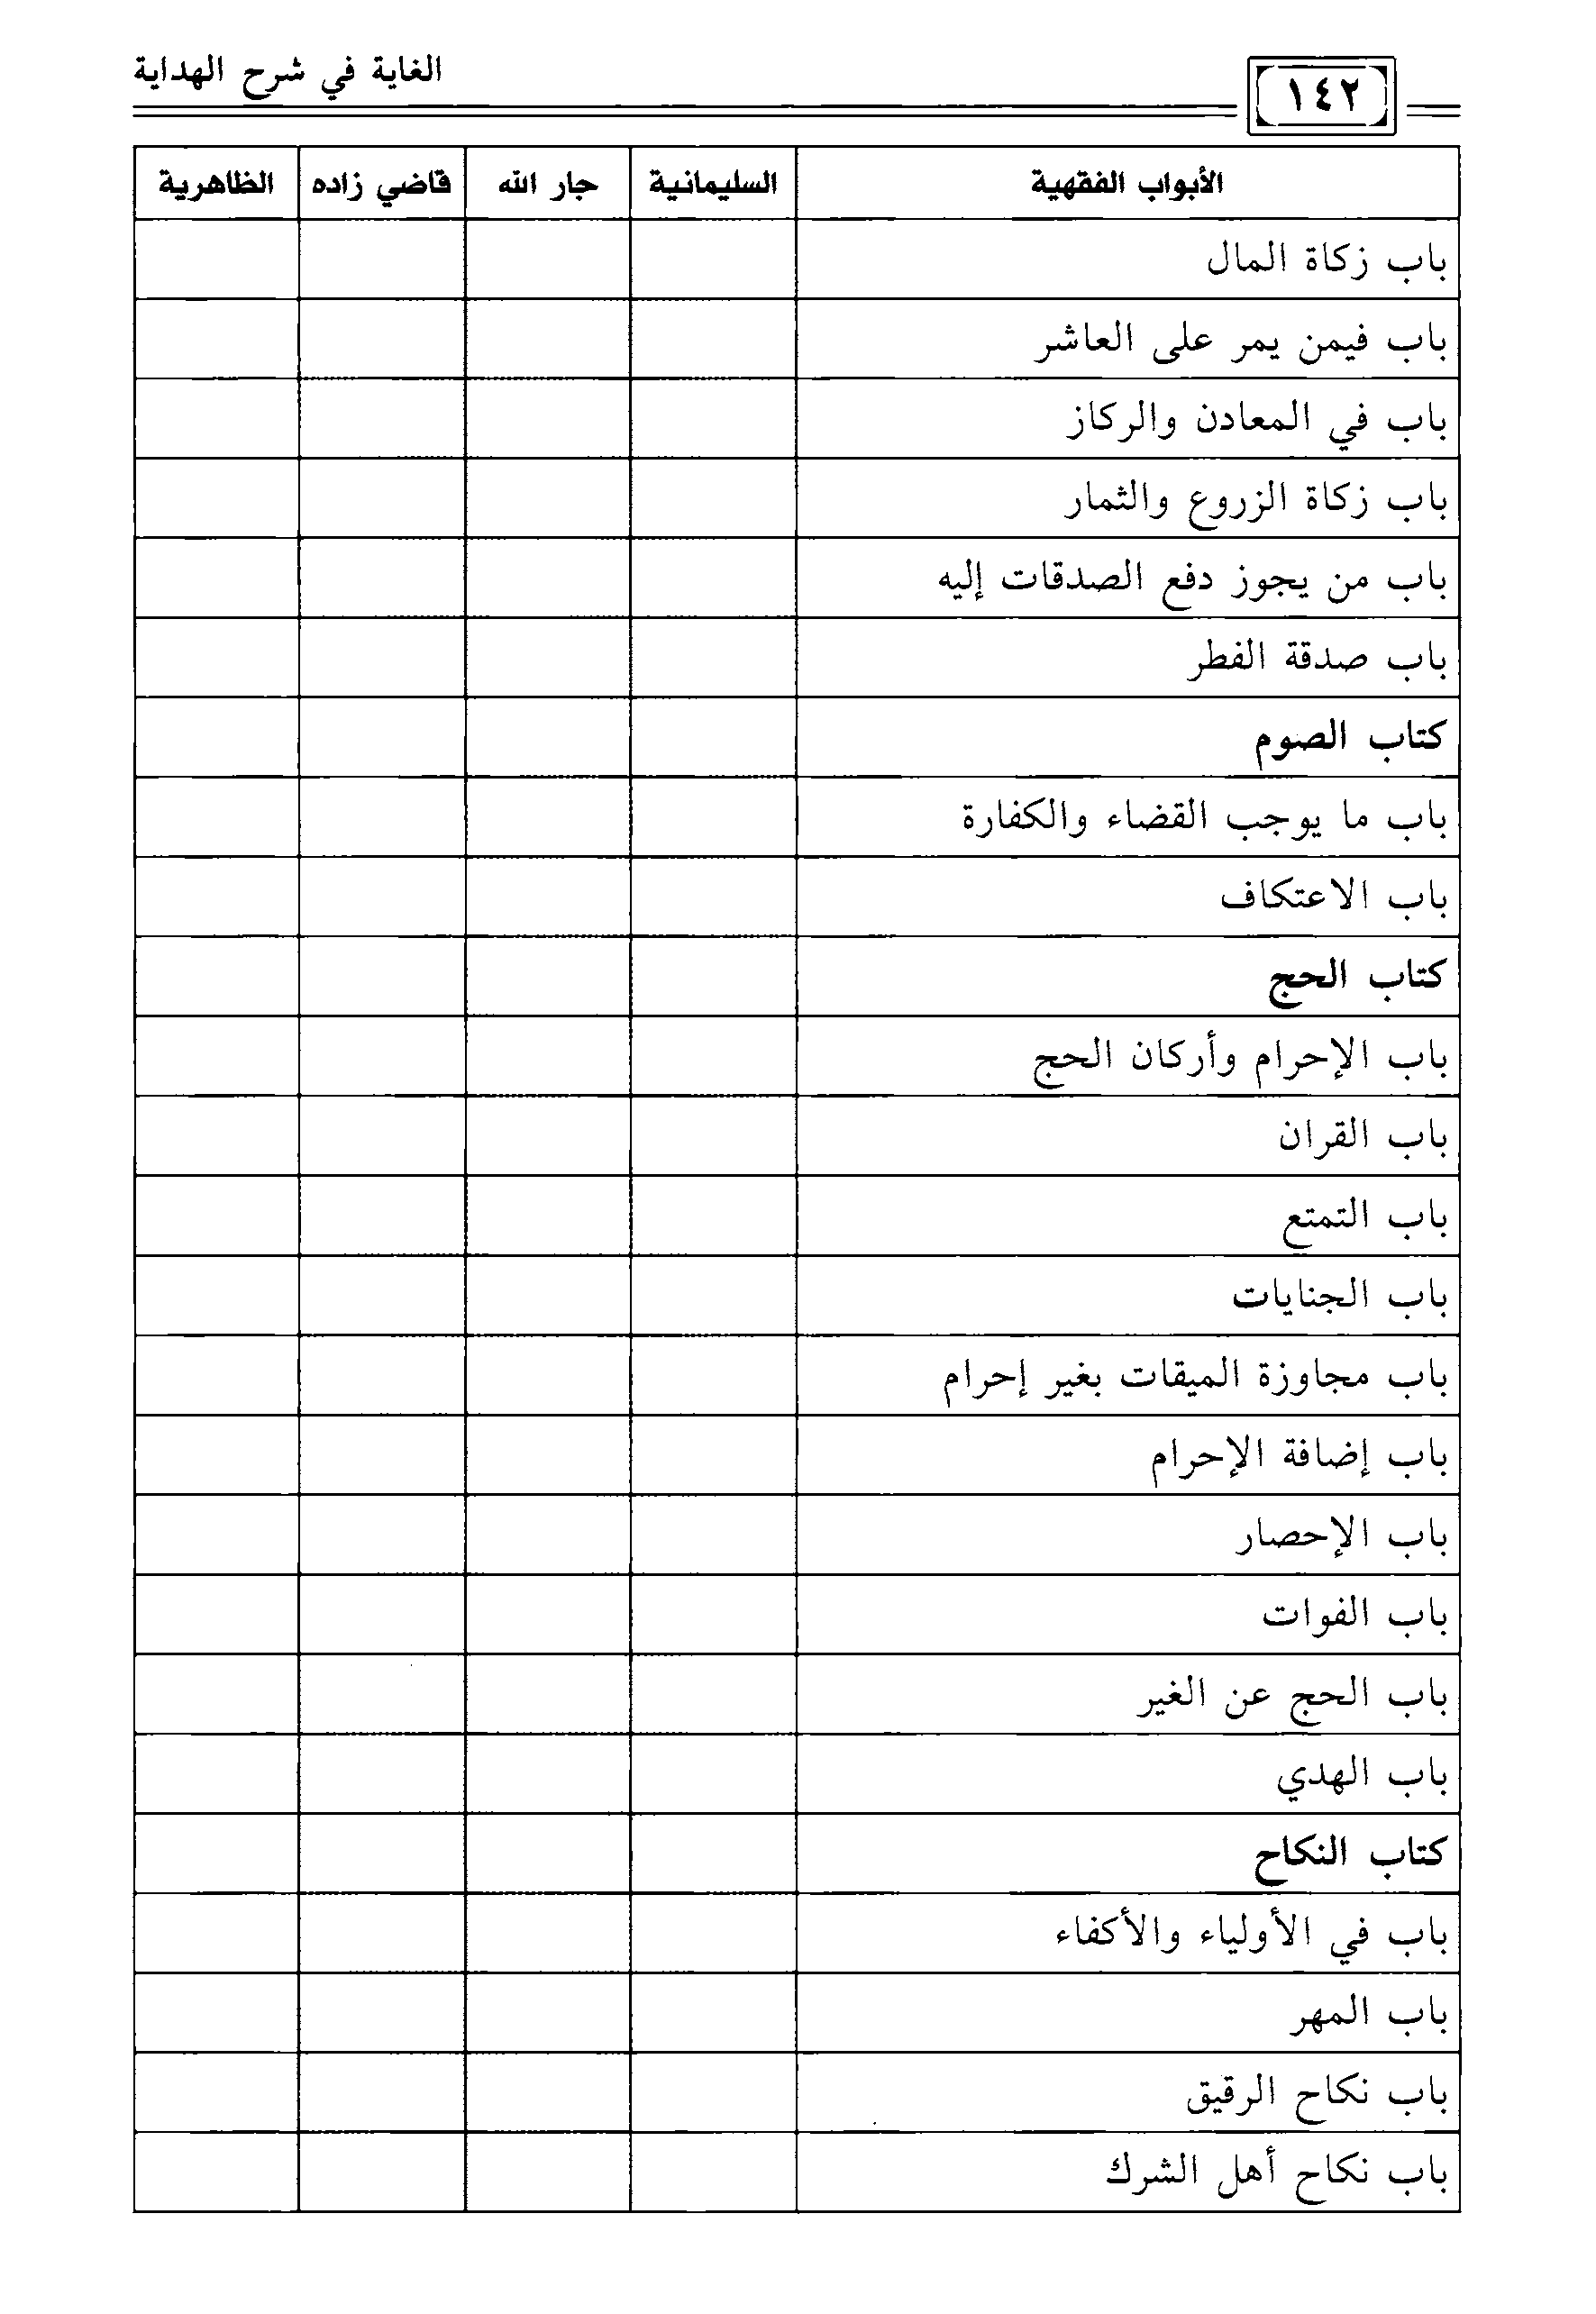 الغاية في شرح الهداية
١٤٢
الأبواب الفقهية السليمانية جار الله قاضي زاده الظاهرية
باب زكاة المال
باب فيمن يمر على العاشر
باب في المعادن والركاز
باب زكاة الزروع والثمار
باب من يجوز دفع الصدقات إليه
باب صدقة الفطر
كتاب الصوم
باب ما يوجب القضاء والكفارة
باب الاعتكاف
كتاب الحج
باب الإحرام وأركان الحج
باب القران
باب التمتع
باب الجنايات
باب مجاوزة الميقات بغير إحرام
باب إضافة الإحرام
باب الإحصار
باب الفوات
باب الحج عن الغير
باب الهدي
كتاب النكاح
باب في الأولياء والأكفاء
باب المهر
باب نكاح الرقيق
باب نكاح أهل الشرك